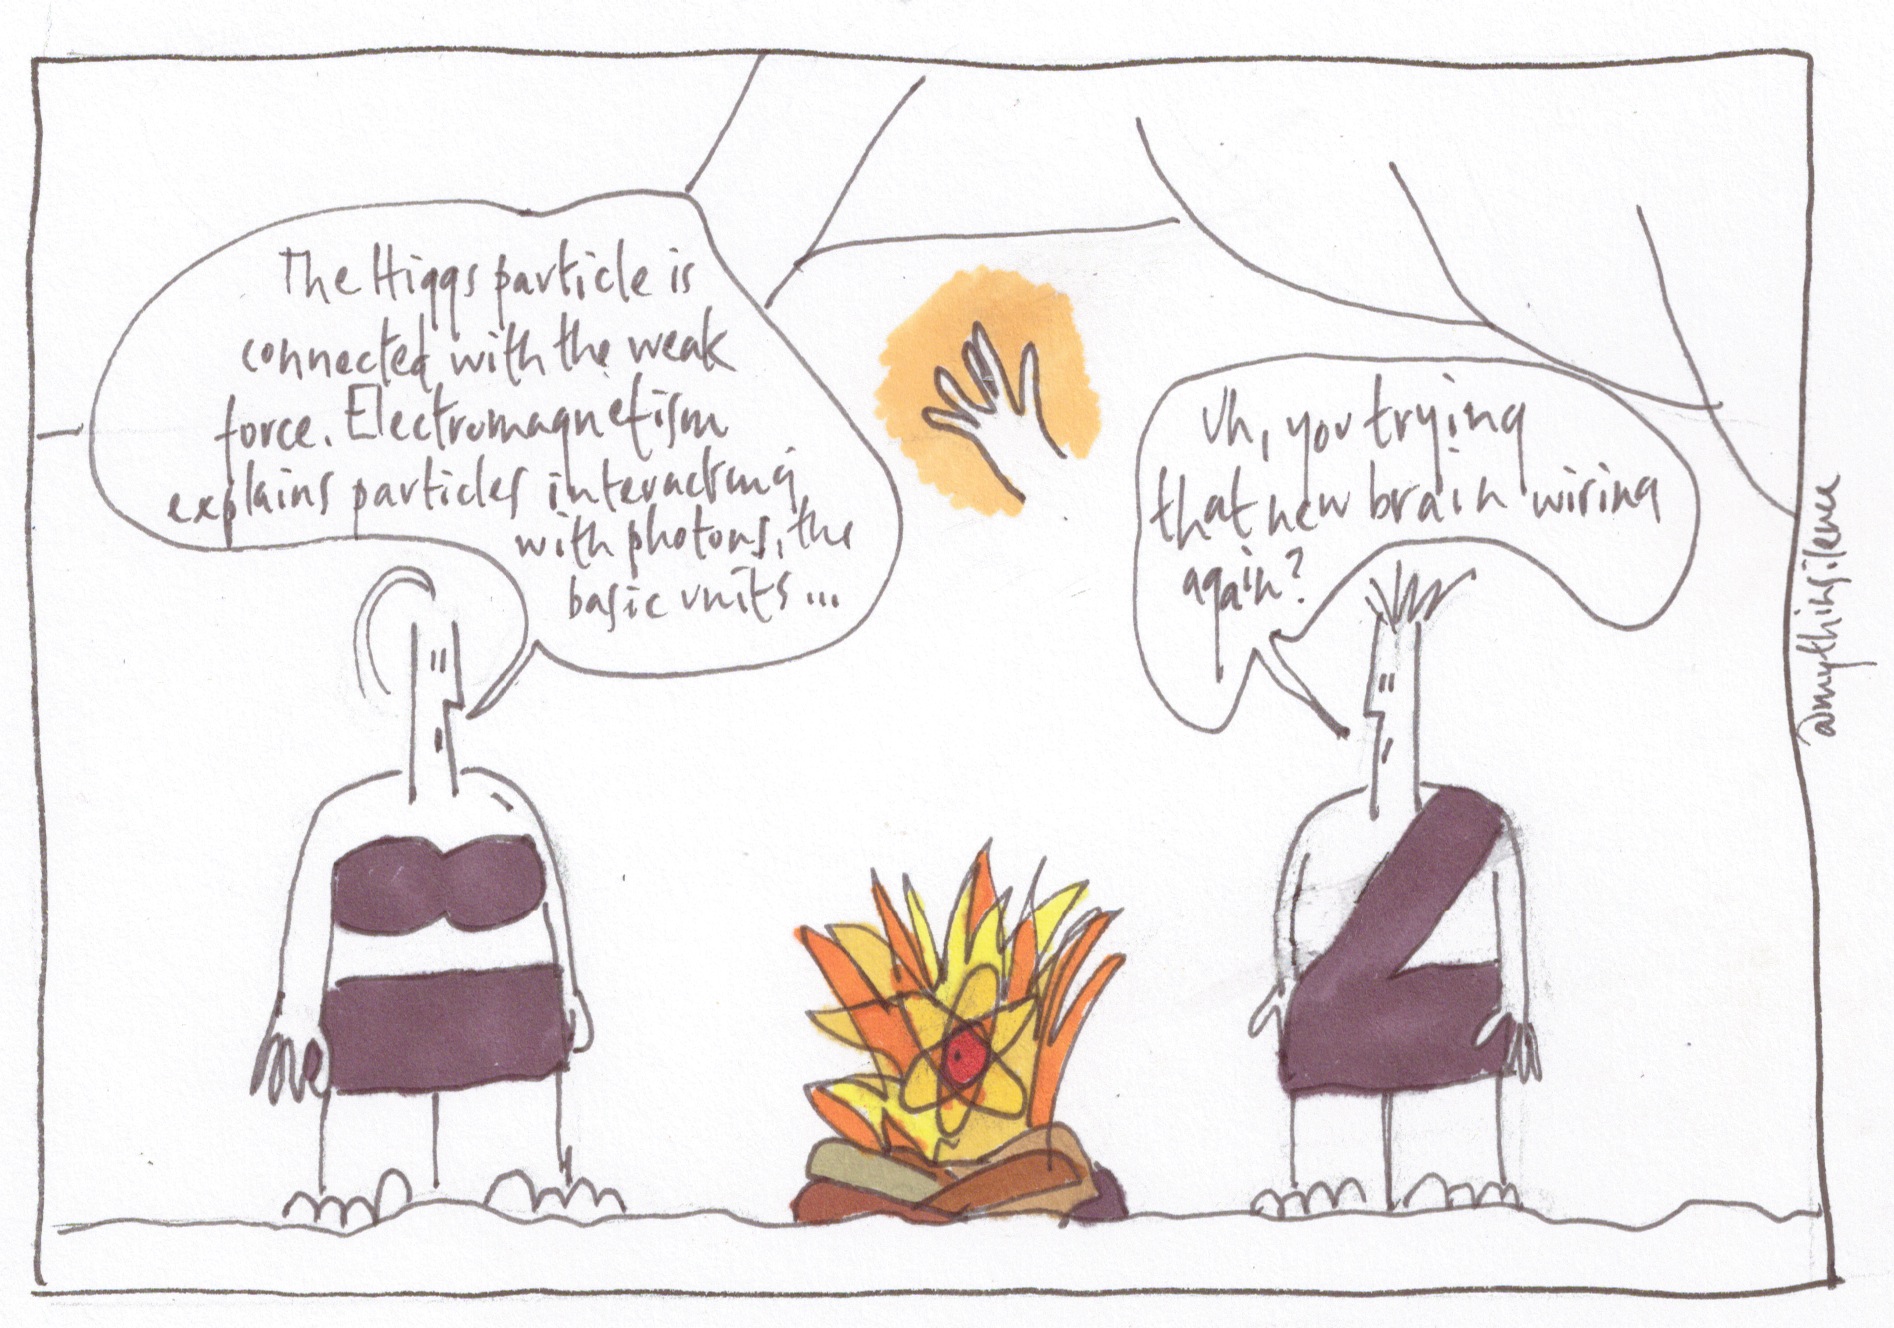 The Higgs particle is
connected with the weak
force. Electromagnetism
explains particles interacting
with photons, the
basic units...
Uh, you trying
that new brain wiring
again?
@amythinsilence